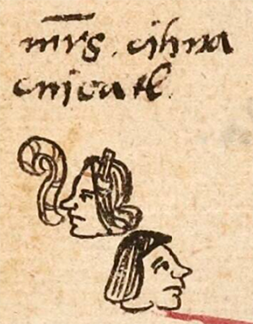 mr̄s. cihua
cuicatl.